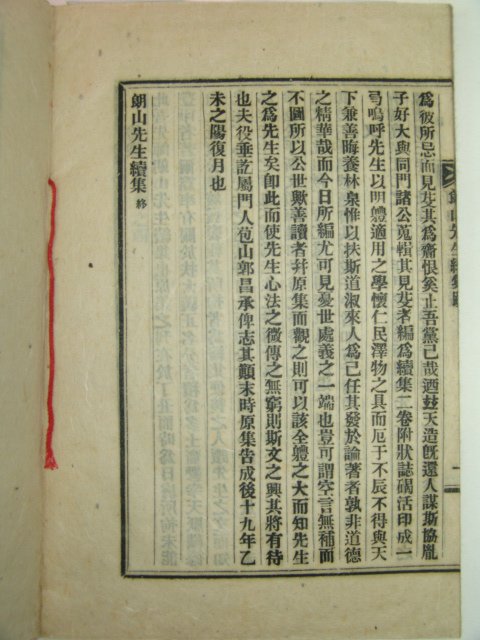 爲彼所忌而見芟其爲齋恨奚止吾黨己哉迺玆天造旣還人謀斯協胤
子好大與同門諸公蒐輯其見芟者編爲續集二卷附狀誌碣活印成一
弓嗚呼先生以明體適用之學懷仁民澤物之具而厄于不辰不得與天
下兼善晦養林泉惟以扶斯道淑來人爲己任其發於論著者孰非道德
之精華哉而今日所編尤可見憂世處義之一端也豈可謂空言無補而
不圖所以公世歟善讀者幷原集而觀之則可以該全體之大而知先生
之爲先生矣卽此而使先生心法之微傳之無窮則斯文之興其將有待
也夫役垂訖屬門人苞山郭昌承俾志其顚末時原集告成後十九年乙
未之陽復月也
朗山先生續集 終
朗山先生續集跋